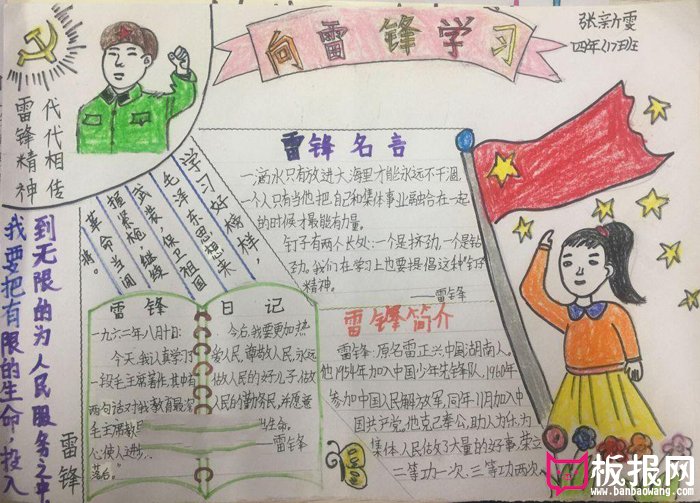 向雷锋学习
张新雯
四年(17)班
代代相传
雷锋精神
学习好榜样,
毛泽东思想来
武装,保卫祖国
握紧枪,继续
革命当闯
将。
雷锋名言
一滴水只有放进大海里才能永远不干涸,
一个人只有当他把自己和集体事业融合在一起
的时候才最能有力量。
钉子有两个长处:一个是挤劲,一个是钻
劲。我们在学习上也要提倡这种“钉子”
精神。
——雷锋
雷锋简介
雷锋:原名雷正兴,中国湖南人。
他1954年加入中国少年先锋队,1960年
参加中国人民解放军,同年11月加入中
国共产党,他克己奉公,助人为乐,为
集体、人民做了大量的好事,荣立
二等功一次,三等功两次
雷锋
一九六二年八月十日:
今天,我认真学习了
一段毛主席著作,其中有
两句话对我教育最深
毛主席教
心使人进步,
落后。”
日记
今后,我要更加热
爱人民,尊敬人民,永远
做人民的好儿子,做
人民的勤务员,并愿意
生命。
——雷锋
我要把有限的生命,投入
到无限的为人民服务之中
雷锋
板报网
www.banbaowang.com